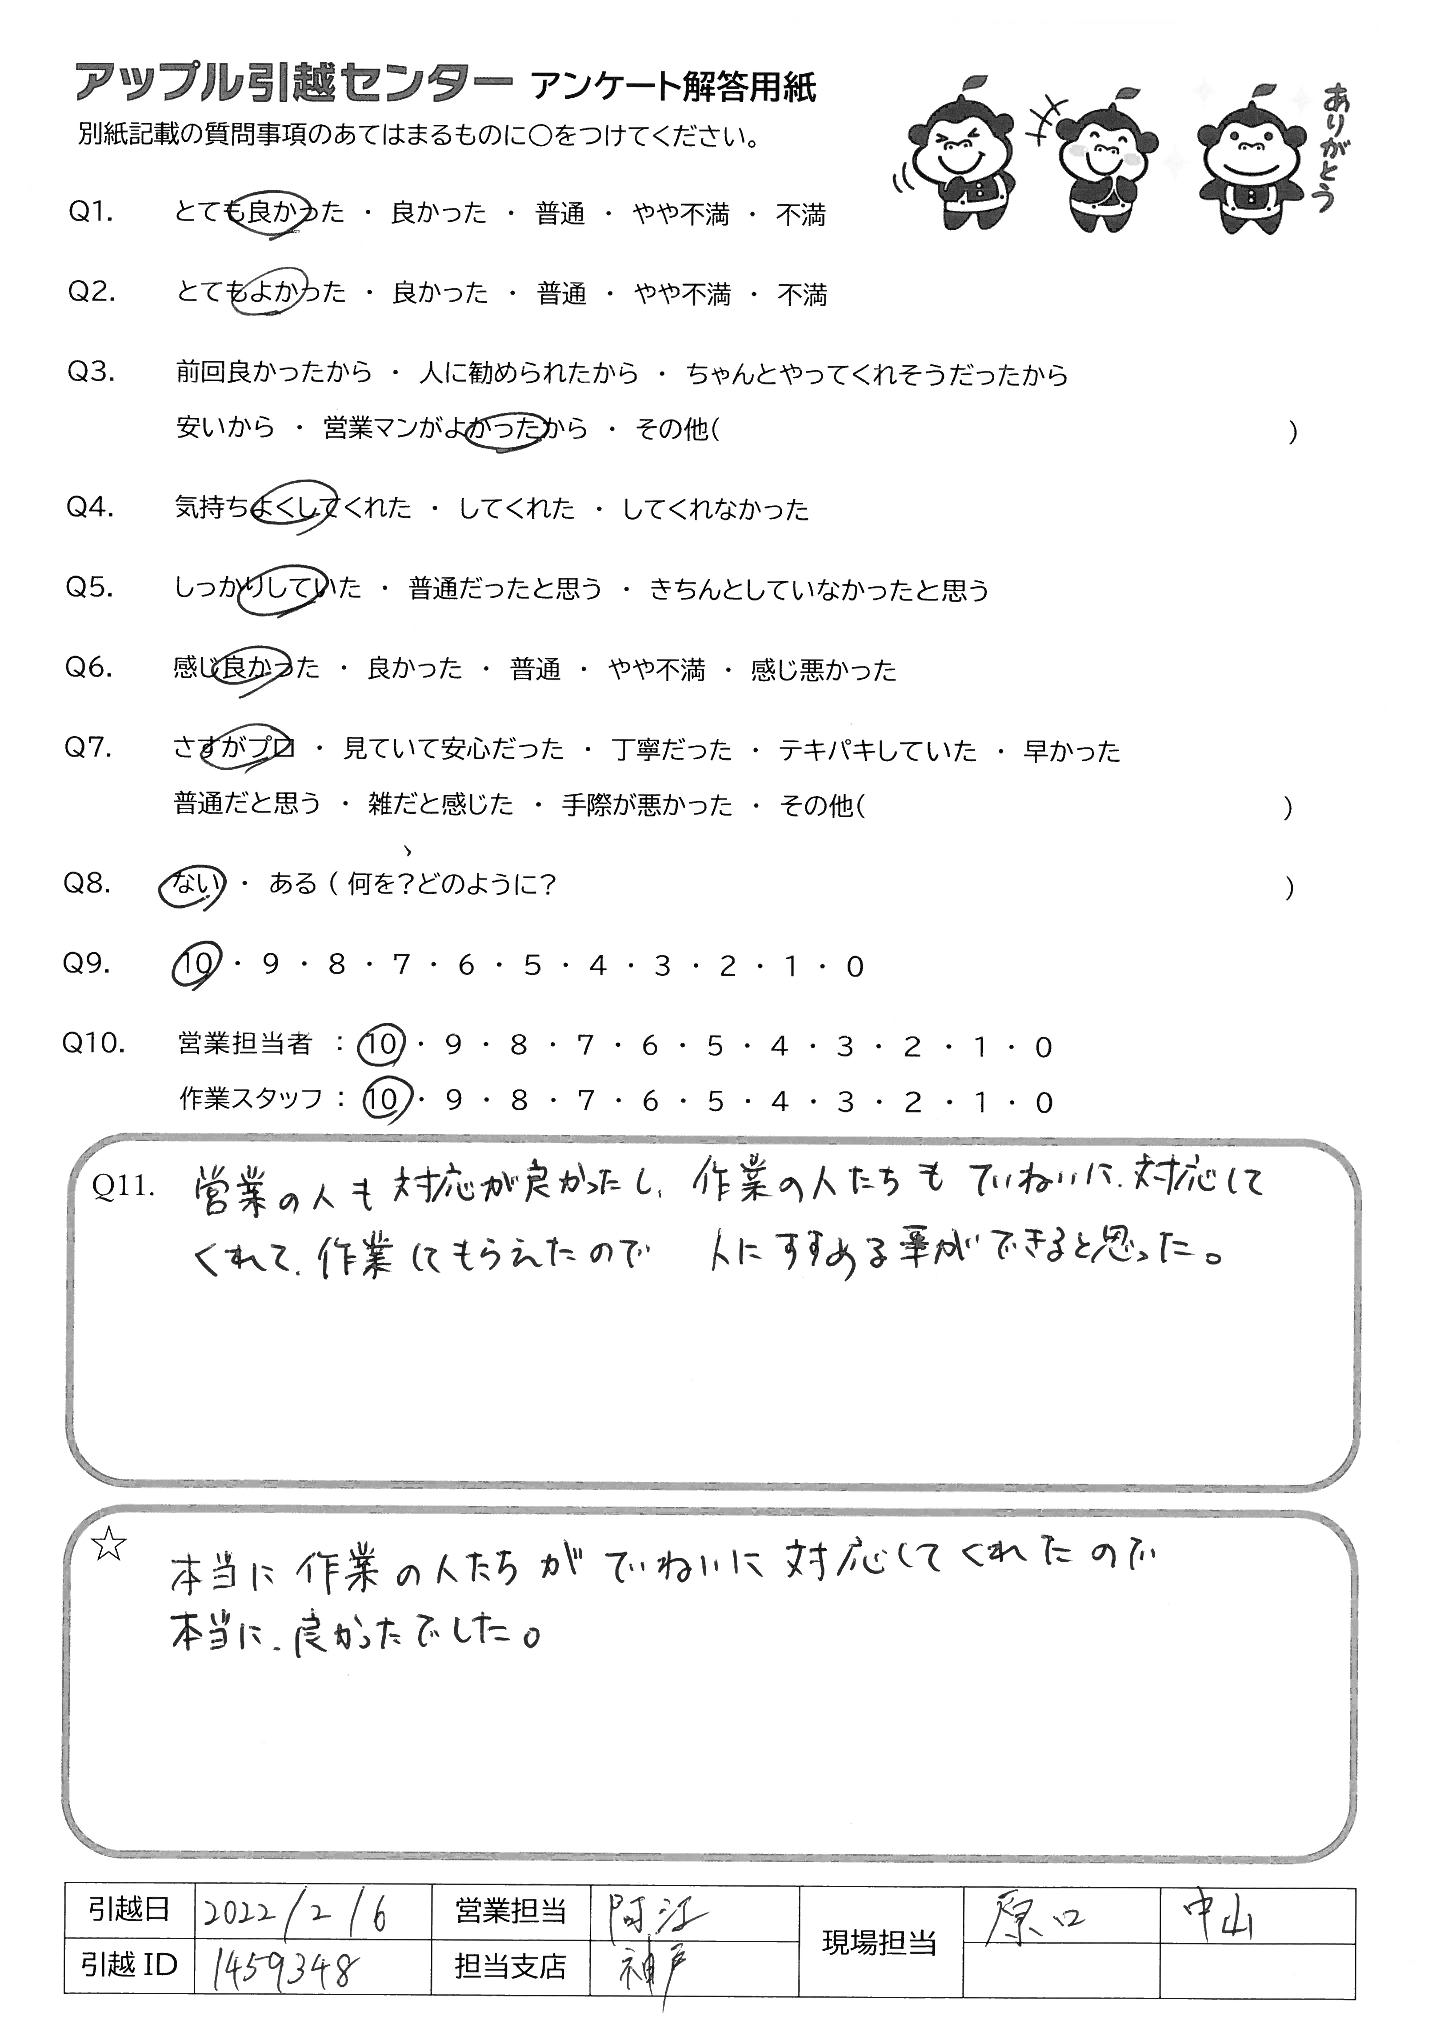 アップル引越センター アンケート解答用紙
別紙記載の質問事項のあてはまるものに〇をつけてください。
ありがとう
Q1. とても良かった ・ 良かった ・ 普通 ・ やや不満 ・ 不満
Q2. とてもよかった ・ 良かった ・ 普通 ・ やや不満 ・ 不満
Q3. 前回良かったから ・ 人に勧められたから ・ ちゃんとやってくれそうだったから
安いから ・ 営業マンがよかったから ・ その他( )
Q4. 気持ちよくしてくれた ・ してくれた ・ してくれなかった
Q5. しっかりしていた ・ 普通だったと思う ・ きちんとしていなかったと思う
Q6. 感じ良かった ・ 良かった ・ 普通 ・ やや不満 ・ 感じ悪かった
Q7. さすがプロ ・ 見ていて安心だった ・ 丁寧だった ・ テキパキしていた ・ 早かった
普通だと思う ・ 雑だと感じた ・ 手際が悪かった ・ その他( )
Q8. ない ・ ある ( 何を?どのように? )
Q9. 10 ・ 9 ・ 8 ・ 7 ・ 6 ・ 5 ・ 4 ・ 3 ・ 2 ・ 1 ・ 0
Q10. 営業担当者 : 10 ・ 9 ・ 8 ・ 7 ・ 6 ・ 5 ・ 4 ・ 3 ・ 2 ・ 1 ・ 0
作業スタッフ : 10 ・ 9 ・ 8 ・ 7 ・ 6 ・ 5 ・ 4 ・ 3 ・ 2 ・ 1 ・ 0
Q11. 営業の人も対応が良かったし、作業の人たちもていねいに、対応して
くれて、作業してもらえたので 人にすすめる事ができると思った。
☆ 本当に作業の人たちがていねいに対応してくれたので
本当に、良かったでした。
引越日 2022/2/6 営業担当 阿江 現場担当 原口 中山
引越ID 1459348 担当支店 神戸